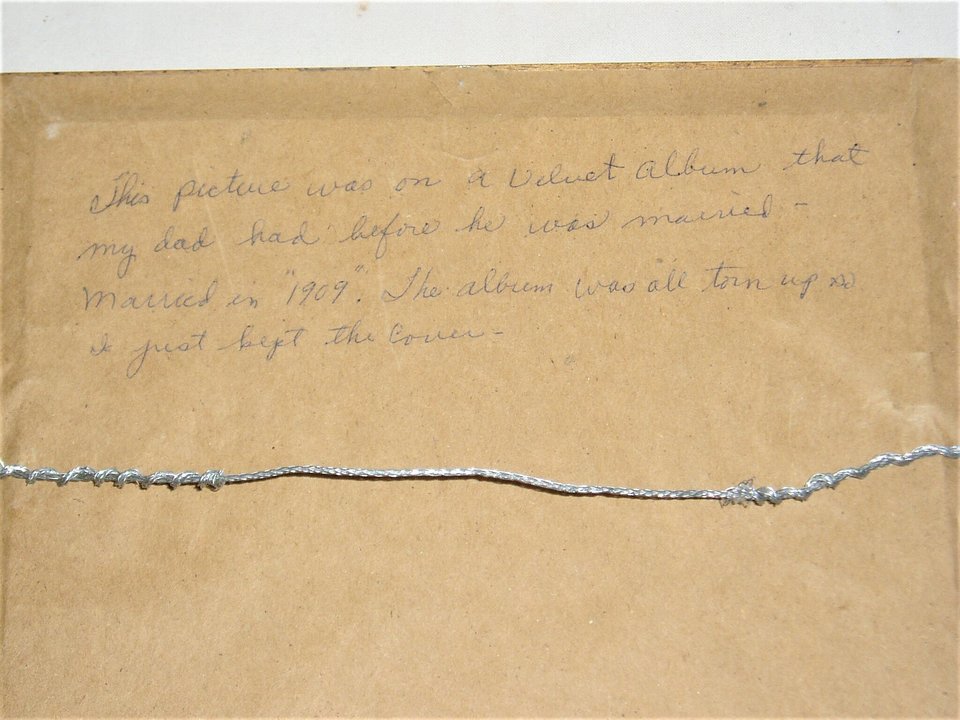 This picture was on a Velvet Album that
my dad had before he was married -
Married in "1909". The album was all torn up so
I just kept the Cover -